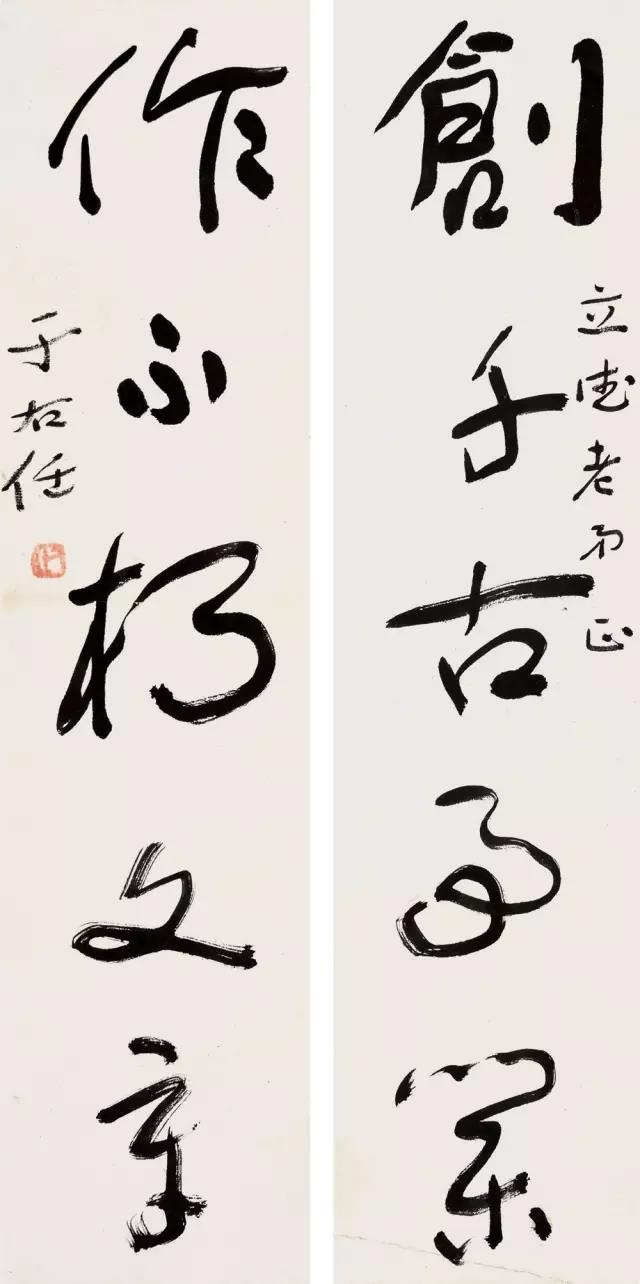 創千古事業
立德老弟正
作不朽文章
于右任